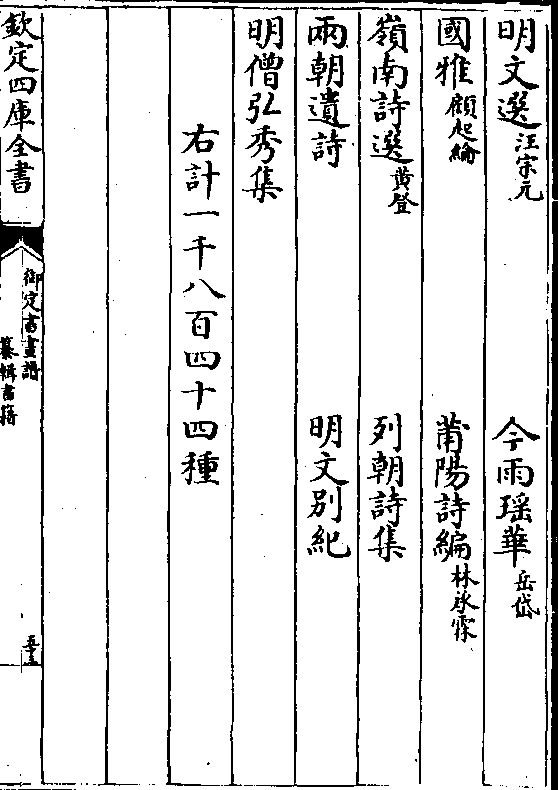 明文選汪宗元 今雨瑶華岳岱
國雅顧起綸 莆陽詩編林承霖
嶺南詩選黄登 列朝詩集
兩朝遺詩 明文别紀
明僧弘秀集
右計一千八百四十四種
欽定四庫全書
御定書畫譜
纂輯書籍